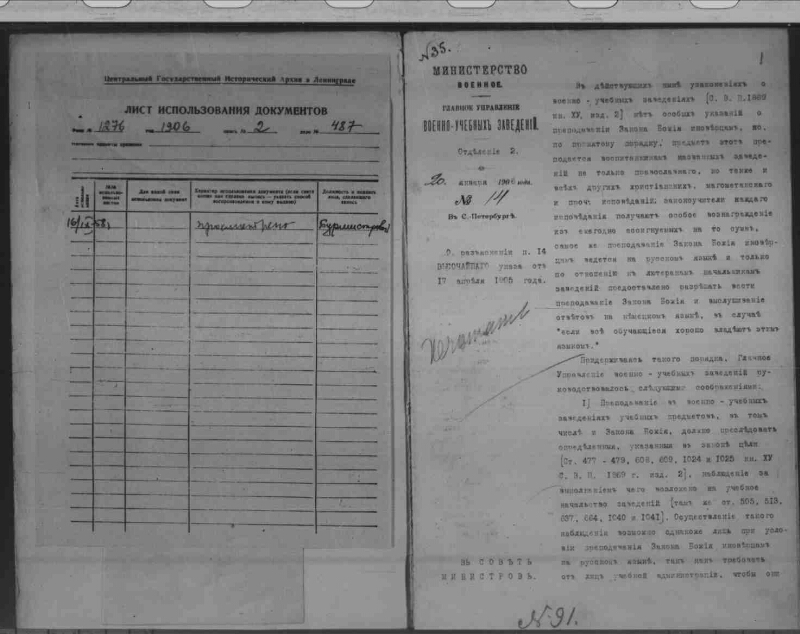 Центральный Государственный Исторический Архив в Ленинграде
ЛИСТ ИСПОЛЬЗОВАНИЯ ДОКУМЕНТОВ
Фонд № 1276 1906 опись № 2 дело № 487
Дата использования
Для какой цели использованы документы
Характер использования документа
Должность и подпись лица, сделавшего запись
16/IX 58
просмотрено
Бурмистрова
№35.
МИНИСТЕРСТВО
ВОЕННОЕ.
ГЛАВНОЕ УПРАВЛЕНІЕ
ВОЕННО-УЧЕБНЫХЪ ЗАВЕДЕНІЙ.
Отдѣленіе 2.
20 января 1906 года.
№ 14
Въ С.-Петербургѣ.
О разъясненіи п. 14
ВЫСОЧАЙШАГО указа отъ
17 апрѣля 1905 года.
ВЪ СОВѢТЪ
МИНИСТРОВЪ.
1
Въ дѣйствующихъ нынѣ узаконеніяхъ о
военно-учебныхъ заведеніяхъ [С. В. П. 1869
кн. ХУ, изд. 2] нѣтъ особыхъ указаній о
преподаваніи Закона Божія иновѣрцамъ, но,
по принятому порядку, предметъ этотъ пре-
подается воспитанникамъ названныхъ заведе-
ній не только православнаго, но также и
всѣхъ другихъ христіанскихъ, магометанскаго
и проч. исповѣданій; законоучители каждаго
исповѣданія получаютъ особое вознагражденіе
изъ ежегодно ассигнуемыхъ на то суммъ,
самое же преподаваніе Закона Божія иновѣр-
цамъ ведется на русскомъ языкѣ и только
по отношенію къ лютеранамъ начальникамъ
заведеній предоставлено разрѣшать вести
преподаваніе Закона Божія и выслушиваніе
отвѣтовъ на нѣмецкомъ языкѣ, въ случаѣ
"если всѣ обучающіеся хорошо владѣютъ этимъ
языкомъ."
Придерживаясь такого порядка, Главное
Управленіе военно-учебныхъ заведеній ру-
ководствовалось слѣдующими соображеніями:
I) Преподаваніе въ военно-учебныхъ
заведеніяхъ учебныхъ предметовъ, въ томъ
числѣ и Закона Божія, должно преслѣдовать
опредѣленныя, указанныя въ законѣ цѣли
[Ст. 477 - 479, 608, 609, 1024 и 1025 кн. ХУ
С. В. П. 1869 г. изд. 2], наблюденіе за
выполненіемъ чего возложено на учебное
начальство заведеній [тамъ же ст. 505, 513,
637, 664, 1040 и 1041]. Осуществленіе такого
наблюденія возможно однакоже лишь при усло-
віи преподаванія Закона Божія иновѣрцамъ
на русскомъ языкѣ, такъ какъ требовать
отъ лицъ учебной администраціи, чтобы они
№91.